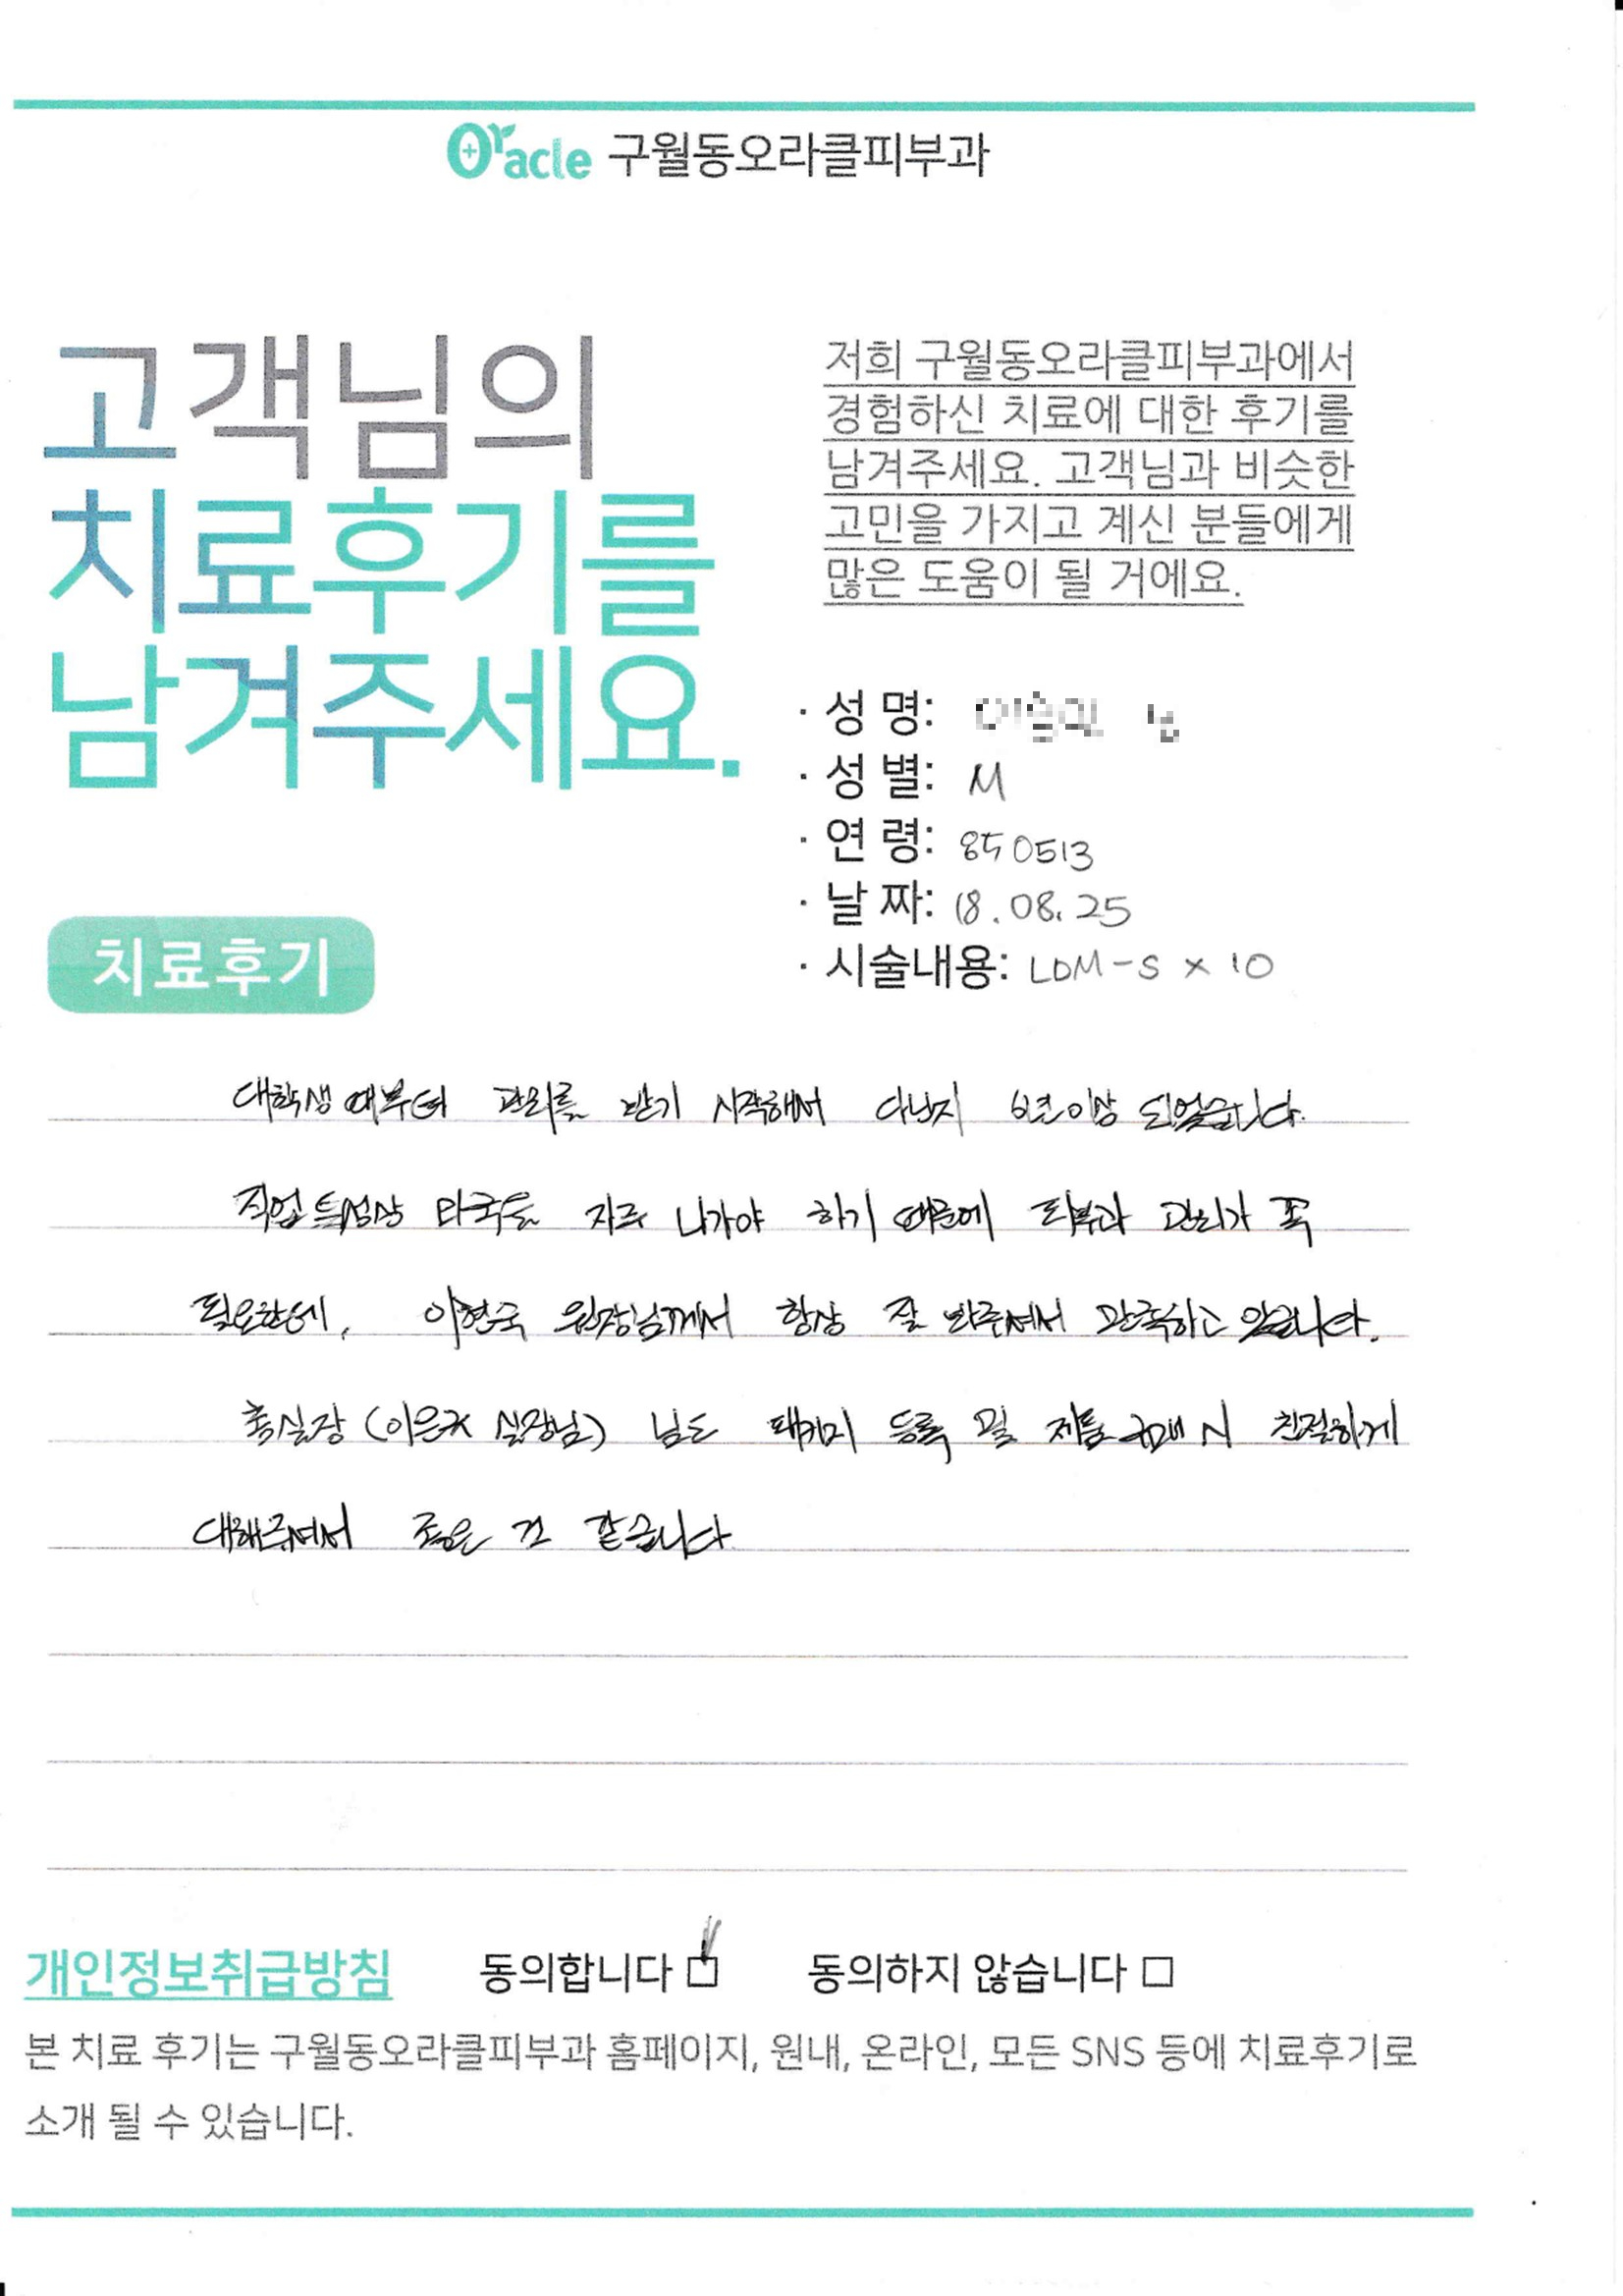 Oracle 구월동오라클피부과
고객님의
치료후기를
남겨주세요.
저희 구월동오라클피부과에서
경험하신 치료에 대한 후기를
남겨주세요. 고객님과 비슷한
고민을 가지고 계신 분들에게
많은 도움이 될 거에요.
· 성 명:
· 성 별: M
· 연 령: 850513
· 날 짜: 18.08.25
· 시술내용: LDM-S × 10
치료후기
대학생 때부터 관리를 받기 시작해서 다닌지 6년이상 되었습니다.
직업 특성상 타국을 자주 나가야 하기 때문에 피부과 관리가 꼭
필요한데, 이현국 원장님께서 항상 잘 봐주셔서 만족하고 있습니다.
실장 (이은지 실장님) 님도 패키지 등록 및 제품 구매 시 친절하게
대해주셔서 좋은 것 같습니다
개인정보취급방침 동의합니다 □ 동의하지 않습니다 □
본 치료 후기는 구월동오라클피부과 홈페이지, 원내, 온라인, 모든 SNS 등에 치료후기로
소개 될 수 있습니다.